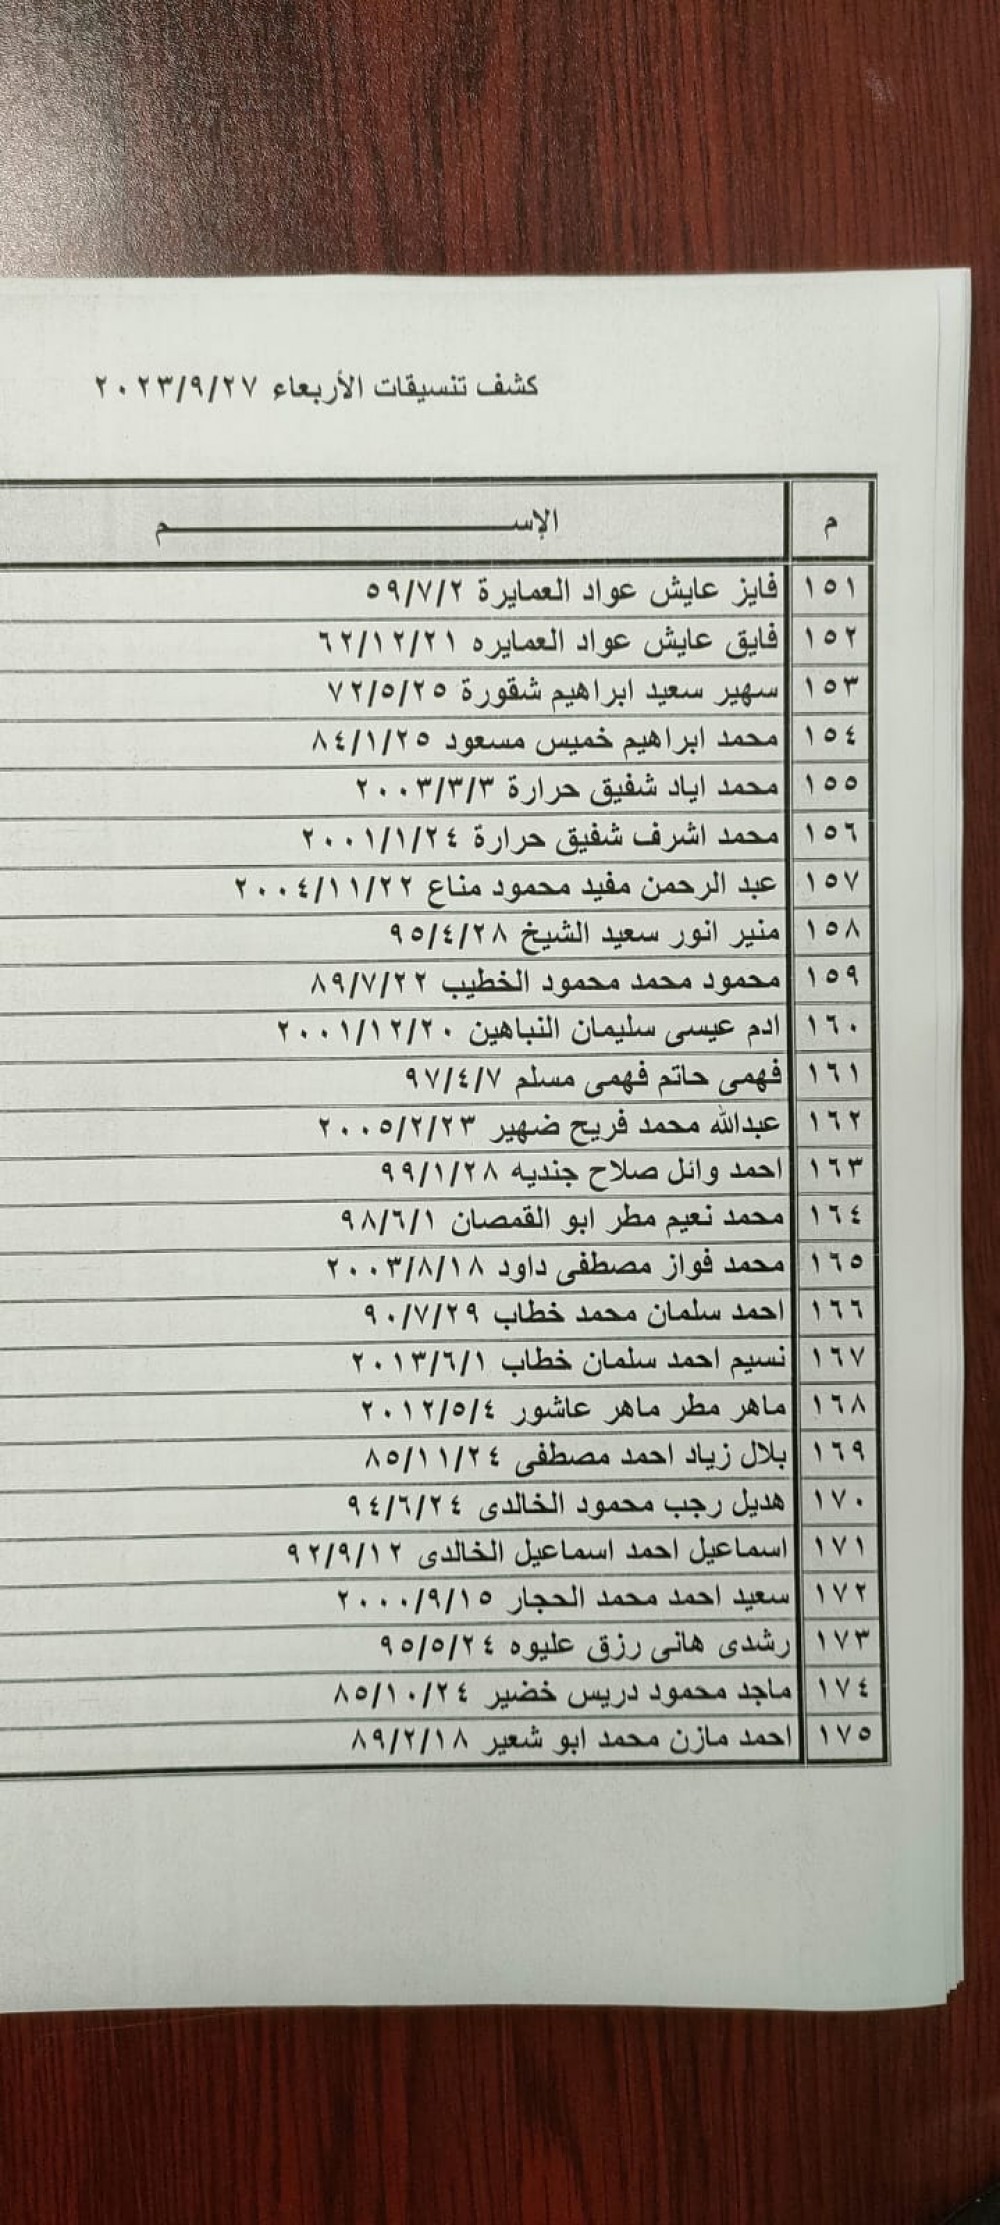 كشف تنسيقات الأربعاء ٢٠٢٣/٩/٢٧
م الإســـــــــــــــــــم
١٥١ فايز عايش عواد العمايرة ٥٩/٧/٢
١٥٢ فايق عايش عواد العمايره ٦٢/١٢/٢١
١٥٣ سهير سعيد ابراهيم شقورة ٧٢/٥/٢٥
١٥٤ محمد ابراهيم خميس مسعود ٨٤/١/٢٥
١٥٥ محمد اياد شفيق حرارة ٢٠٠٣/٣/٣
١٥٦ محمد اشرف شفيق حرارة ٢٠٠١/١/٢٤
١٥٧ عبد الرحمن مفيد محمود مناع ٢٠٠٤/١١/٢٢
١٥٨ منير انور سعيد الشيخ ٩٥/٤/٢٨
١٥٩ محمود محمد محمود الخطيب ٨٩/٧/٢٢
١٦٠ ادم عيسى سليمان النباهين ٢٠٠١/١٢/٢٠
١٦١ فهمى حاتم فهمى مسلم ٩٧/٤/٧
١٦٢ عبدالله محمد فريح ضهير ٢٠٠٥/٢/٢٣
١٦٣ احمد وائل صلاح جنديه ٩٩/١/٢٨
١٦٤ محمد نعيم مطر ابو القمصان ٩٨/٦/١
١٦٥ محمد فواز مصطفى داود ٢٠٠٣/٨/١٨
١٦٦ احمد سلمان محمد خطاب ٩٠/٧/٢٩
١٦٧ نسيم احمد سلمان خطاب ٢٠١٣/٦/١
١٦٨ ماهر مطر ماهر عاشور ٢٠١٢/٥/٤
١٦٩ بلال زياد احمد مصطفى ٨٥/١١/٢٤
١٧٠ هديل رجب محمود الخالدى ٩٤/٦/٢٤
١٧١ اسماعيل احمد اسماعيل الخالدى ٩٢/٩/١٢
١٧٢ سعيد احمد محمد الحجار ٢٠٠٠/٩/١٥
١٧٣ رشدى هانى رزق عليوه ٩٥/٥/٢٤
١٧٤ ماجد محمود دريس خضير ٨٥/١٠/٢٤
١٧٥ احمد مازن محمد ابو شعير ٨٩/٢/١٨